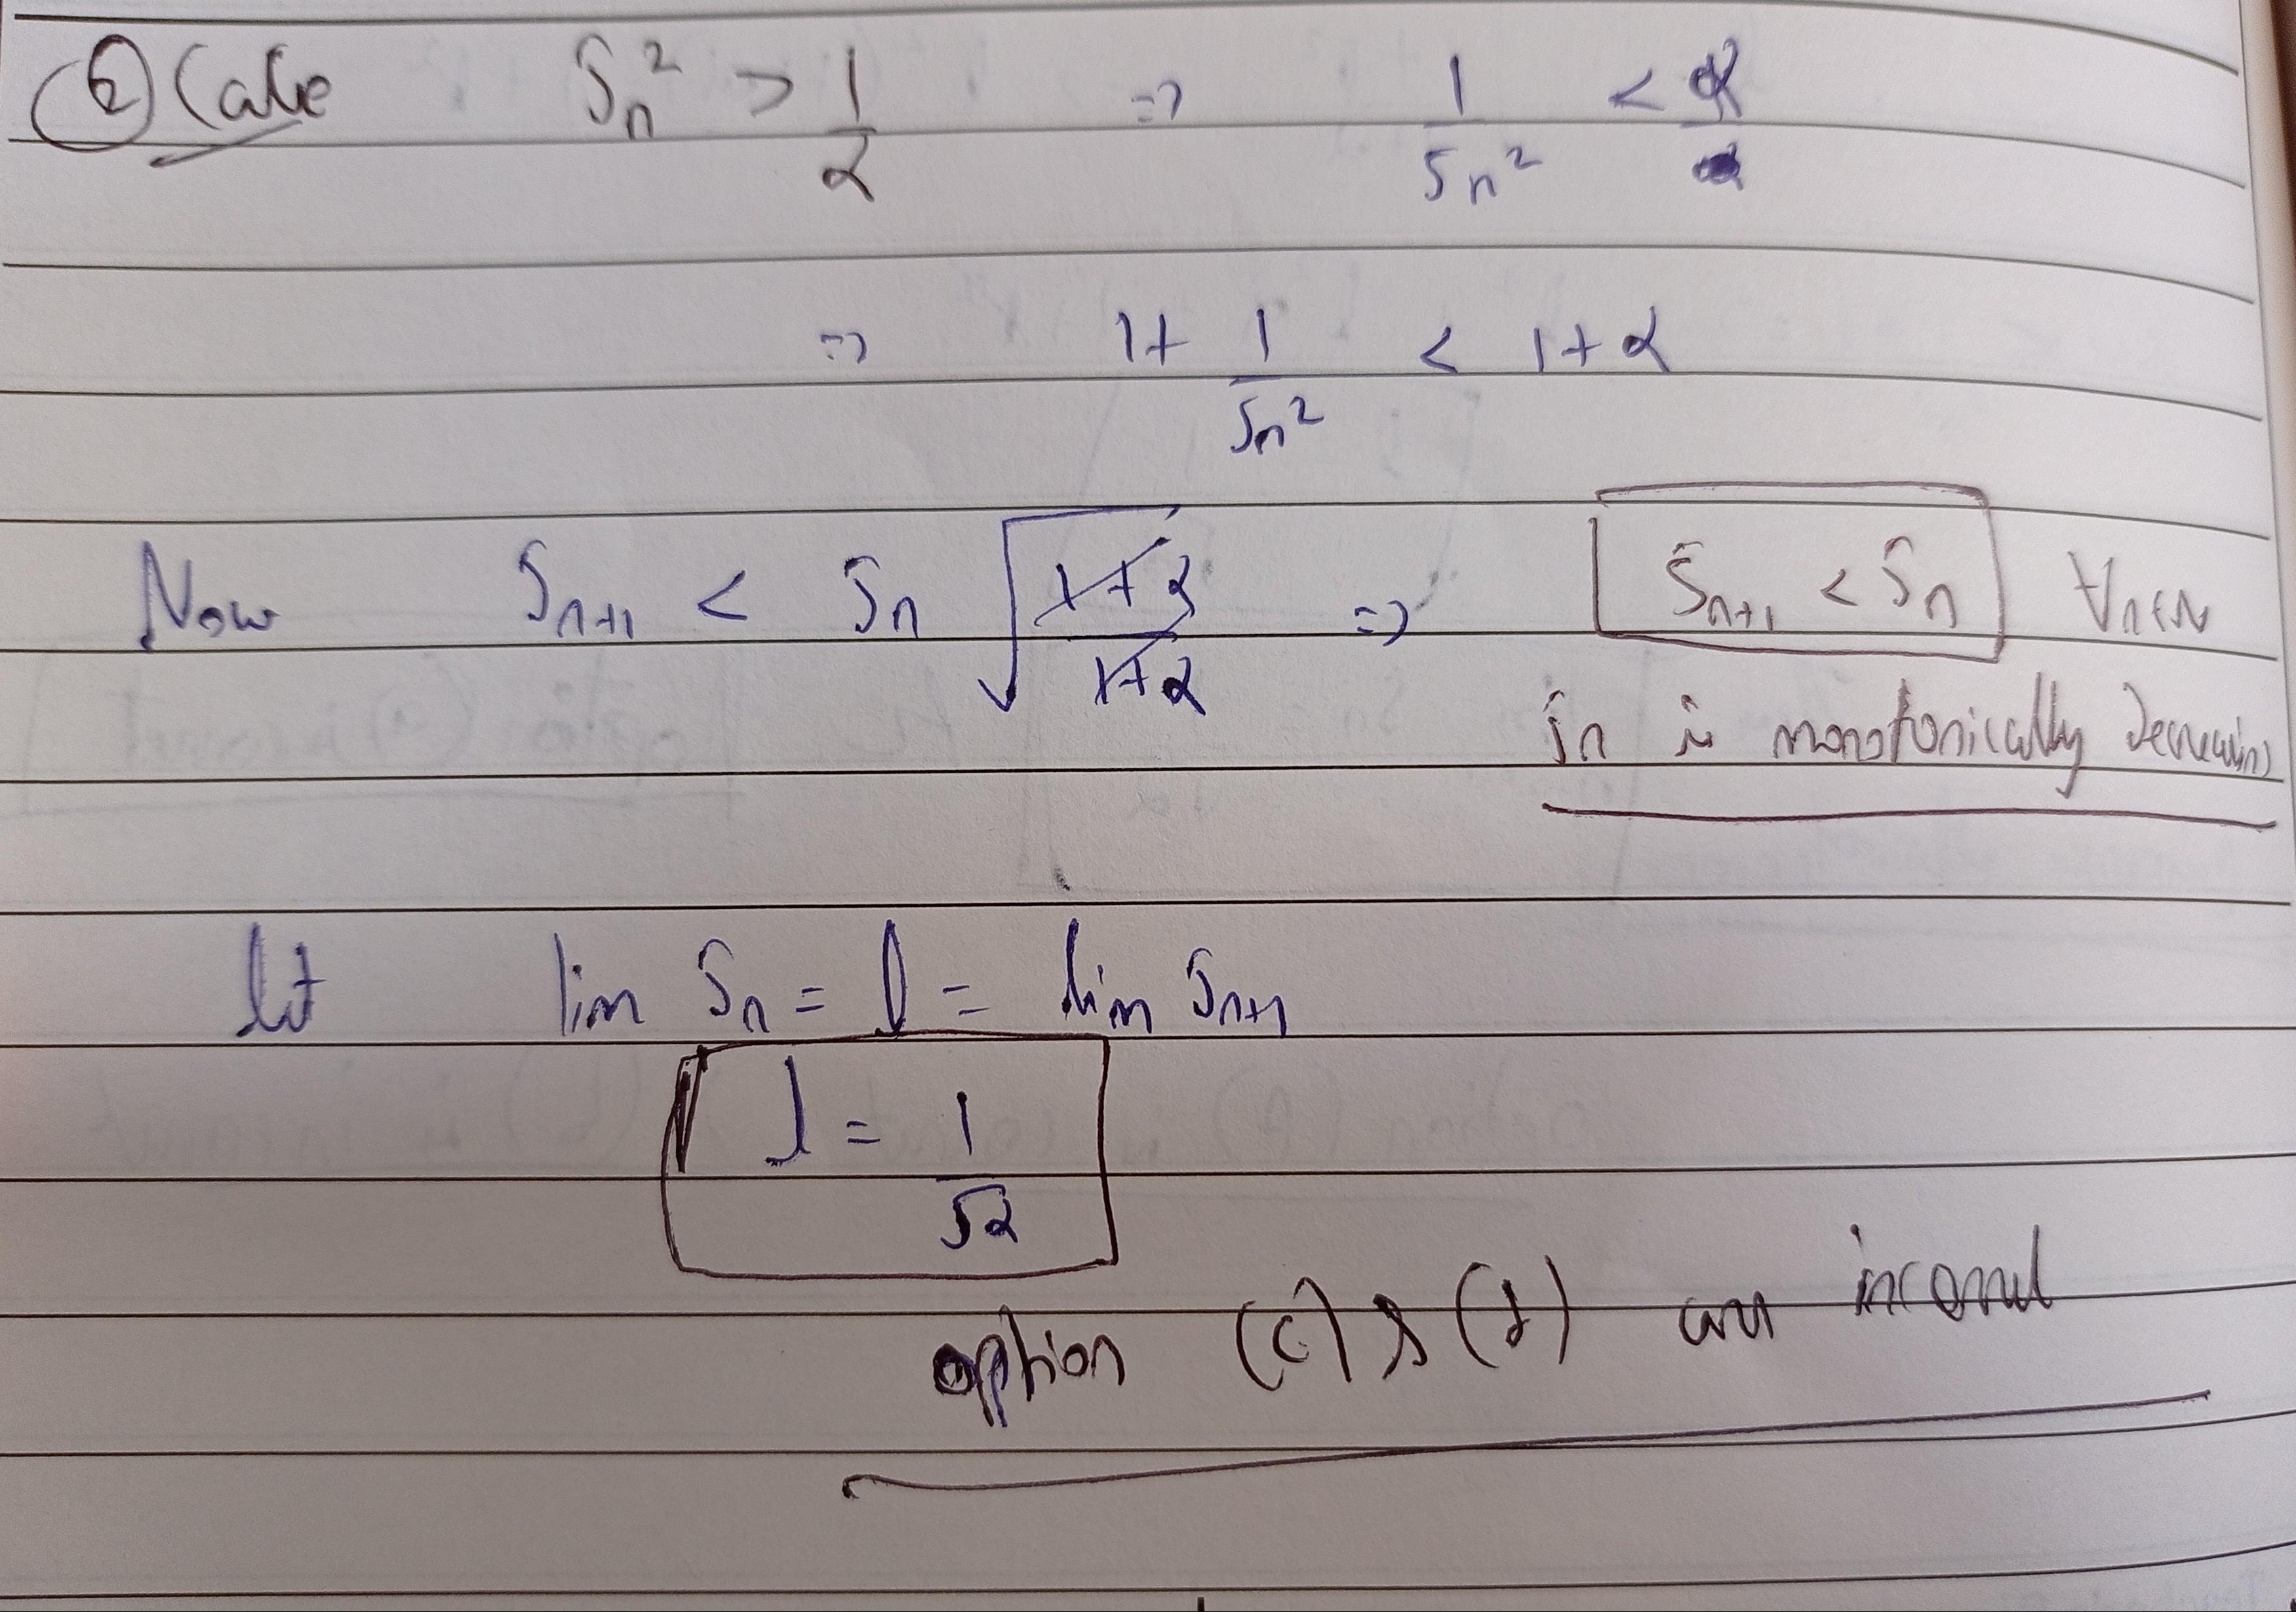 ② Case Sn² > 1/α => 1/Sn² < α
=> 1 + 1/Sn² < 1 + α
Now Sn+1 < Sn √(1+α / 1+α) => Sn+1 < Sn ∀n∈N
Sn is monotonically decreasing
let lim Sn = l = lim Sn+1
l = 1/√α
option (c) & (d) are incorrect